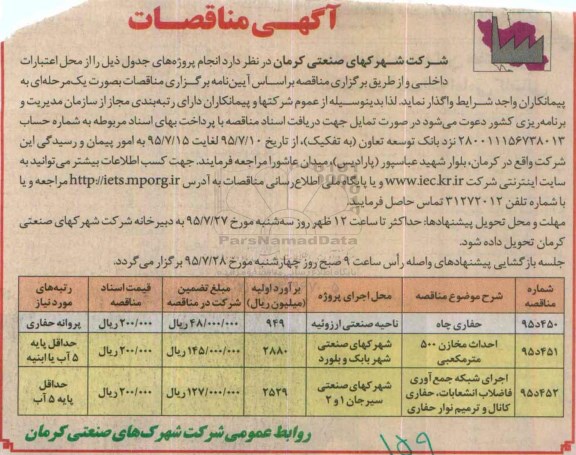 آگهی مناقصات
شرکت شهرکهای صنعتی کرمان در نظر دارد انجام پروژه‌های جدول ذیل را از محل اعتبارات
داخلی و از طریق برگزاری مناقصه بر اساس آیین‌نامه برگزاری مناقصات بصورت یک مرحله‌ای به
پیمانکاران واجد شرایط واگذار نماید. لذا بدینوسیله از عموم شرکتها و پیمانکاران دارای رتبه‌بندی مجاز از سازمان مدیریت و
برنامه‌ریزی کشور دعوت می‌شود در صورت تمایل جهت دریافت اسناد مناقصه با پرداخت بهای اسناد مربوطه به شماره حساب
۲۸۰۰۱۱۱۵۶۷۳۸۰۱۳ نزد بانک توسعه تعاون (به تفکیک)، از تاریخ ۹۵/۷/۱۰ لغایت ۹۵/۷/۱۵ به امور پیمان و رسیدگی این
شرکت واقع در کرمان، بلوار شهید عباسپور (پارادیس)، میدان عاشورا مراجعه فرمایند. جهت کسب اطلاعات بیشتر می‌توانید به
سایت اینترنتی شرکت www.iec.kr.ir و یا پایگاه ملی اطلاع‌رسانی مناقصات به آدرس http://iets.mporg.ir مراجعه و یا
با شماره تلفن ۳۱۲۷۲۰۱۲ تماس حاصل فرمایید.
مهلت و محل تحویل پیشنهادها: حداکثر تا ساعت ۱۲ ظهر روز سه‌شنبه مورخ ۹۵/۷/۲۷ به دبیرخانه شرکت شهرکهای صنعتی
کرمان تحویل داده شود.
جلسه بازگشایی پیشنهادهای واصله رأس ساعت ۹ صبح روز چهارشنبه مورخ ۹۵/۷/۲۸ برگزار می‌گردد.
شماره مناقصه | شرح موضوع مناقصه | محل اجرای پروژه | برآورد اولیه (میلیون ریال) | مبلغ تضمین شرکت در مناقصه | قیمت اسناد مناقصه | رتبه‌های مورد نیاز
۹۵د۴۵۰ | حفاری چاه | ناحیه صنعتی ارزوئیه | ۹۴۹ | ۴۸/۰۰۰/۰۰۰ ریال | ۲۰۰/۰۰۰ ریال | پروانه حفاری
۹۵د۴۵۱ | احداث مخازن ۵۰۰ مترمکعبی | شهرکهای صنعتی شهر بابک و بلورد | ۲۸۸۰ | ۱۴۵/۰۰۰/۰۰۰ ریال | ۲۰۰/۰۰۰ ریال | حداقل پایه ۵ آب یا ابنیه
۹۵د۴۵۲ | اجرای شبکه جمع‌آوری فاضلاب انشعابات، حفاری کانال و ترمیم نوار حفاری | شهرکهای صنعتی سیرجان ۱ و ۲ | ۲۵۲۹ | ۱۲۷/۰۰۰/۰۰۰ ریال | ۲۰۰/۰۰۰ ریال | حداقل پایه ۵ آب
روابط عمومی شرکت شهرک‌های صنعتی کرمان
۱۵۹
ParsNamadData